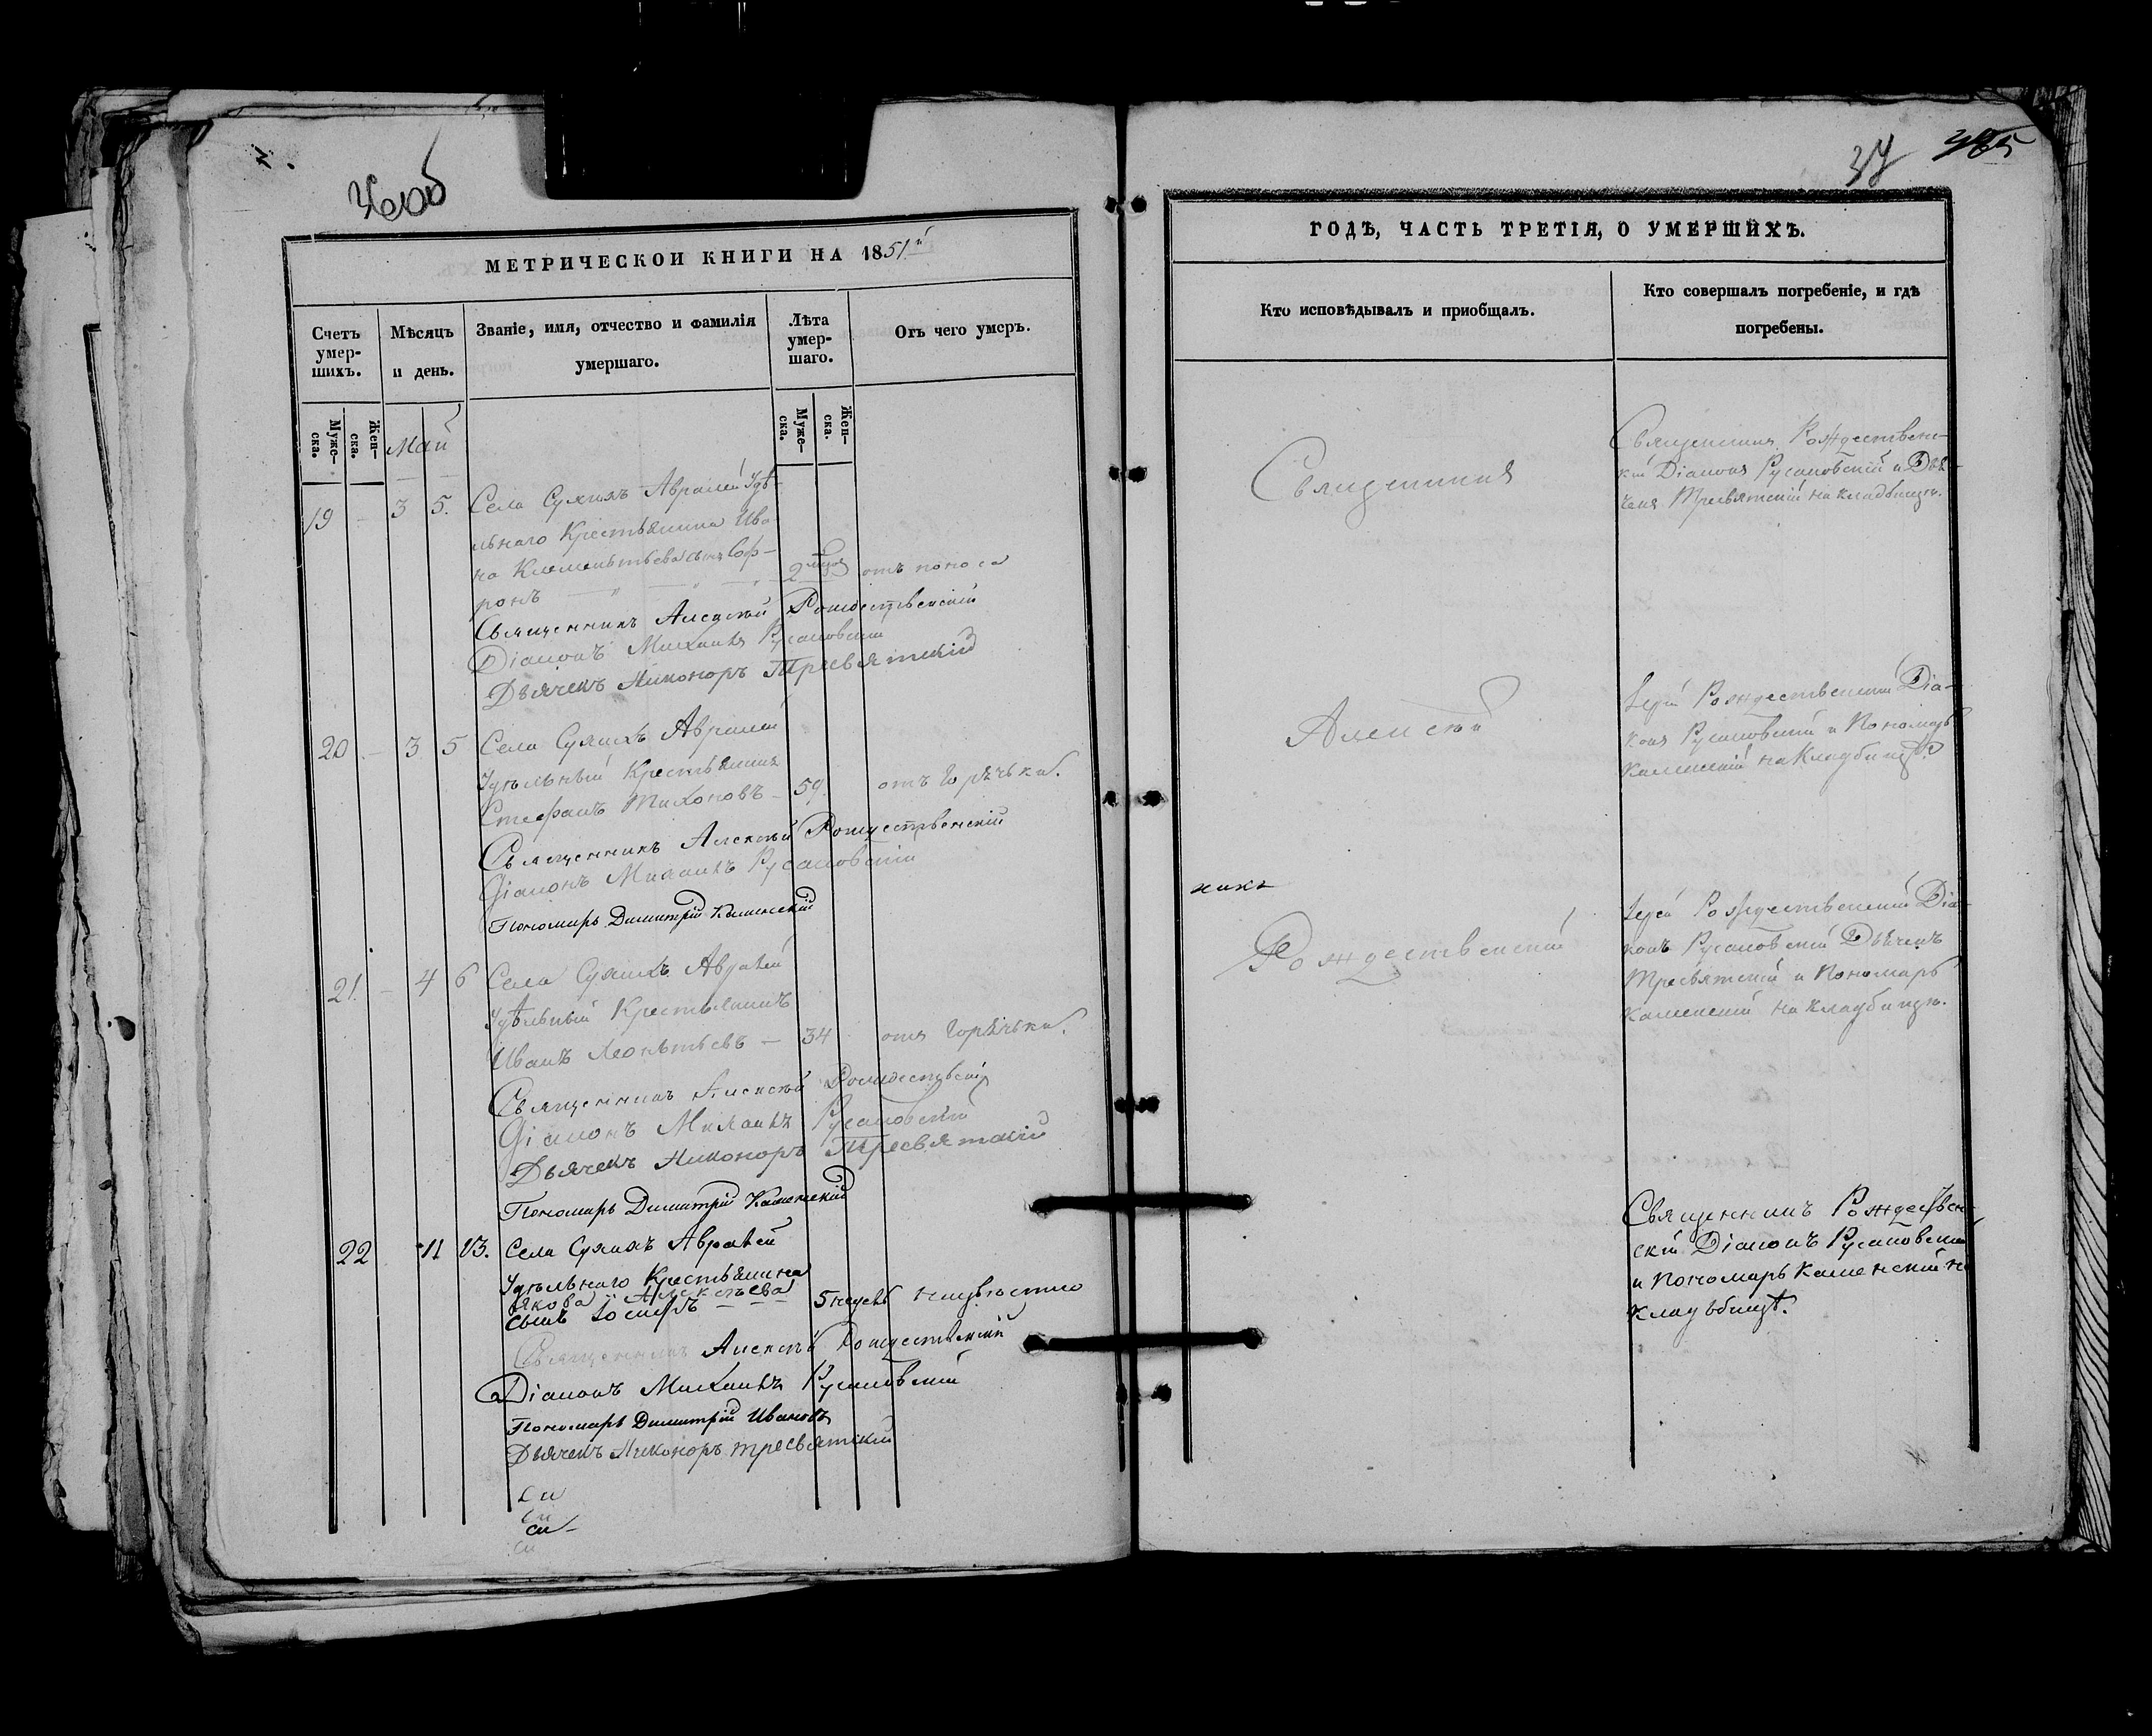 37
МЕТРИЧЕСКОЙ КНИГИ НА 1851й
Счетъ умер-шихъ.
Мѣсяцъ и день.
Званіе, имя, отчество и фамилія умершаго.
Лѣта умер-шаго.
Отъ чего умеръ.
Муже-ска.
Жен-ска.
Муже-ска.
Жен-ска.
Май
19 - 3 5. Села Авралей Удѣ-
льнаго Крестьянина Ива-
на Клементьева сынъ Соф-
ронъ 2 отъ поноса
Священникъ Алексѣй Рождественскій
Діаконъ Михаилъ Русановскій
Дьячекъ Никоноръ Тресвятскій
20 - 3 5 Села Авралей
Удѣльный Крестьянинъ
Стефанъ Тихоновъ - 59 отъ Горячьки.
Священникъ Алексѣй Рождественскій
Діаконъ Михаилъ Русановскій
Пономарь Димитрій Каменскій
21. - 4 6 Села Авралей
Удѣльный Крестьянинъ
Иванъ Леонтьевъ - 34 отъ Горячьки.
Священникъ Алексѣй Рождествскій
Діаконъ Михаилъ Русановскій
Дьячекъ Никоноръ Тресвятскій
Пономарь Димитрій Каменскій
22 11 13. Села Авралей
Удѣльнаго Крестьянина
Якова Алексѣева
сынъ Іосифъ 5 недѣль
Священникъ Алексѣй Рождественскій
Діаконъ Михаилъ Русановскій
Пономарь Димитрій Ивановъ
Дьячекъ Никоноръ Тресвятскій
ГОДЪ, ЧАСТЬ ТРЕТІЯ, О УМЕРШИХЪ.
Кто исповѣдывалъ и пріобщалъ.
Кто совершалъ погребеніе, и гдѣ погребены.
Священникъ
Алексѣй
никъ
Рождественскій
Священникъ Рождествен-
скій Діаконъ Русановскій и Дья-
чекъ Тресвятскій на кладбищѣ.
Іерей Рождественскій Діа-
конъ Русановскій и Пономарь
Каменскій на Кладбищѣ.
Іерей Рождественскій Діа-
конъ Русановскій Дьячекъ
Тресвятскій и Пономарь
Каменскій на кладбищѣ.
Священникъ Рождествен-
скій Діаконъ Русановскій
и Пономарь Каменскій на
Кладъбищѣ.